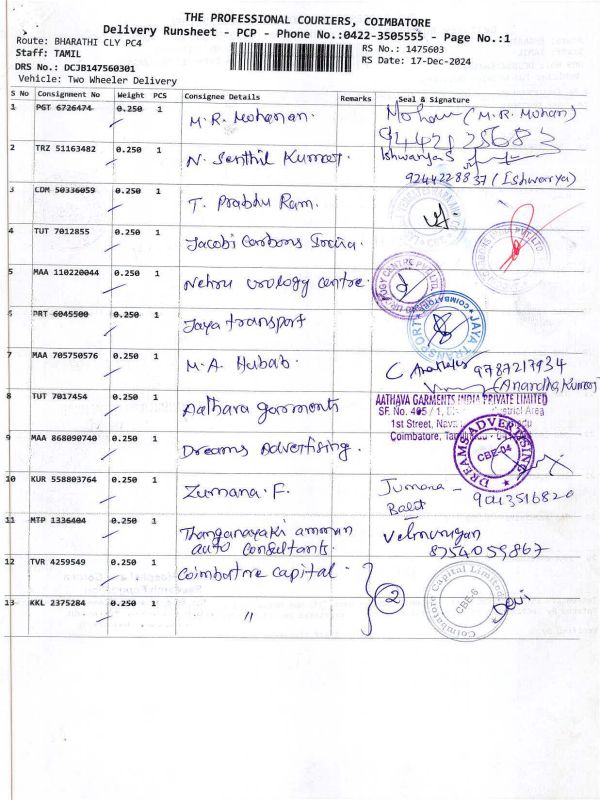 THE PROFESSIONAL COURIERS, COIMBATORE
Delivery Runsheet - PCP - Phone No.:0422-3505555 - Page No.:1
Route: BHARATHI CLY PC4
RS No.: 1475603
Staff: TAMIL
RS Date: 17-Dec-2024
DRS No.: DCJB147560301
Vehicle: Two Wheeler Delivery
S No Consignment No Weight PCS Consignee Details Remarks Seal & Signature
1 PGT 6726474 0.250 1 M.R. Mohanan. Mohan (M.R. Mohan)
9442125683
2 TRZ 51163482 0.250 1 N. Senthil Kumar. Ishwarya S
9244228837 (Ishwarya)
3 CDM 50336059 0.250 1 T. Prabhu Ram.
4 TUT 7012855 0.250 1 Jacobi Carbons India.
5 MAA 110220044 0.250 1 Nehru urology centre
6 PRT 6045500 0.250 1 Jaya transport
JAYA TRANSPORT
COIMBATORE
7 MAA 705750576 0.250 1 M.A. Hubab. 9787217934
(Anandha Kumar)
8 TUT 7017454 0.250 1 Aathava garments
AATHAVA GARMENTS INDIA PRIVATE LIMITED
SF. No. 405 / 1, Industrial Area
1st Street,
Coimbatore,
9 MAA 868090740 0.250 1 Dreams Advertising.
DREAMS ADVERTISING
CBE-04
10 KUR 558803764 0.250 1 Zumana. F. Jumana -
9043516820
11 MTP 1336404 0.250 1 Thanganayaki amman
auto consultants. Velmurugan
8754059867
12 TVR 4259549 0.250 1 Coimbatore capital.
13 KKL 2375284 0.250 1 "
2
Coimbatore Capital Limited
CBE-6
Devi